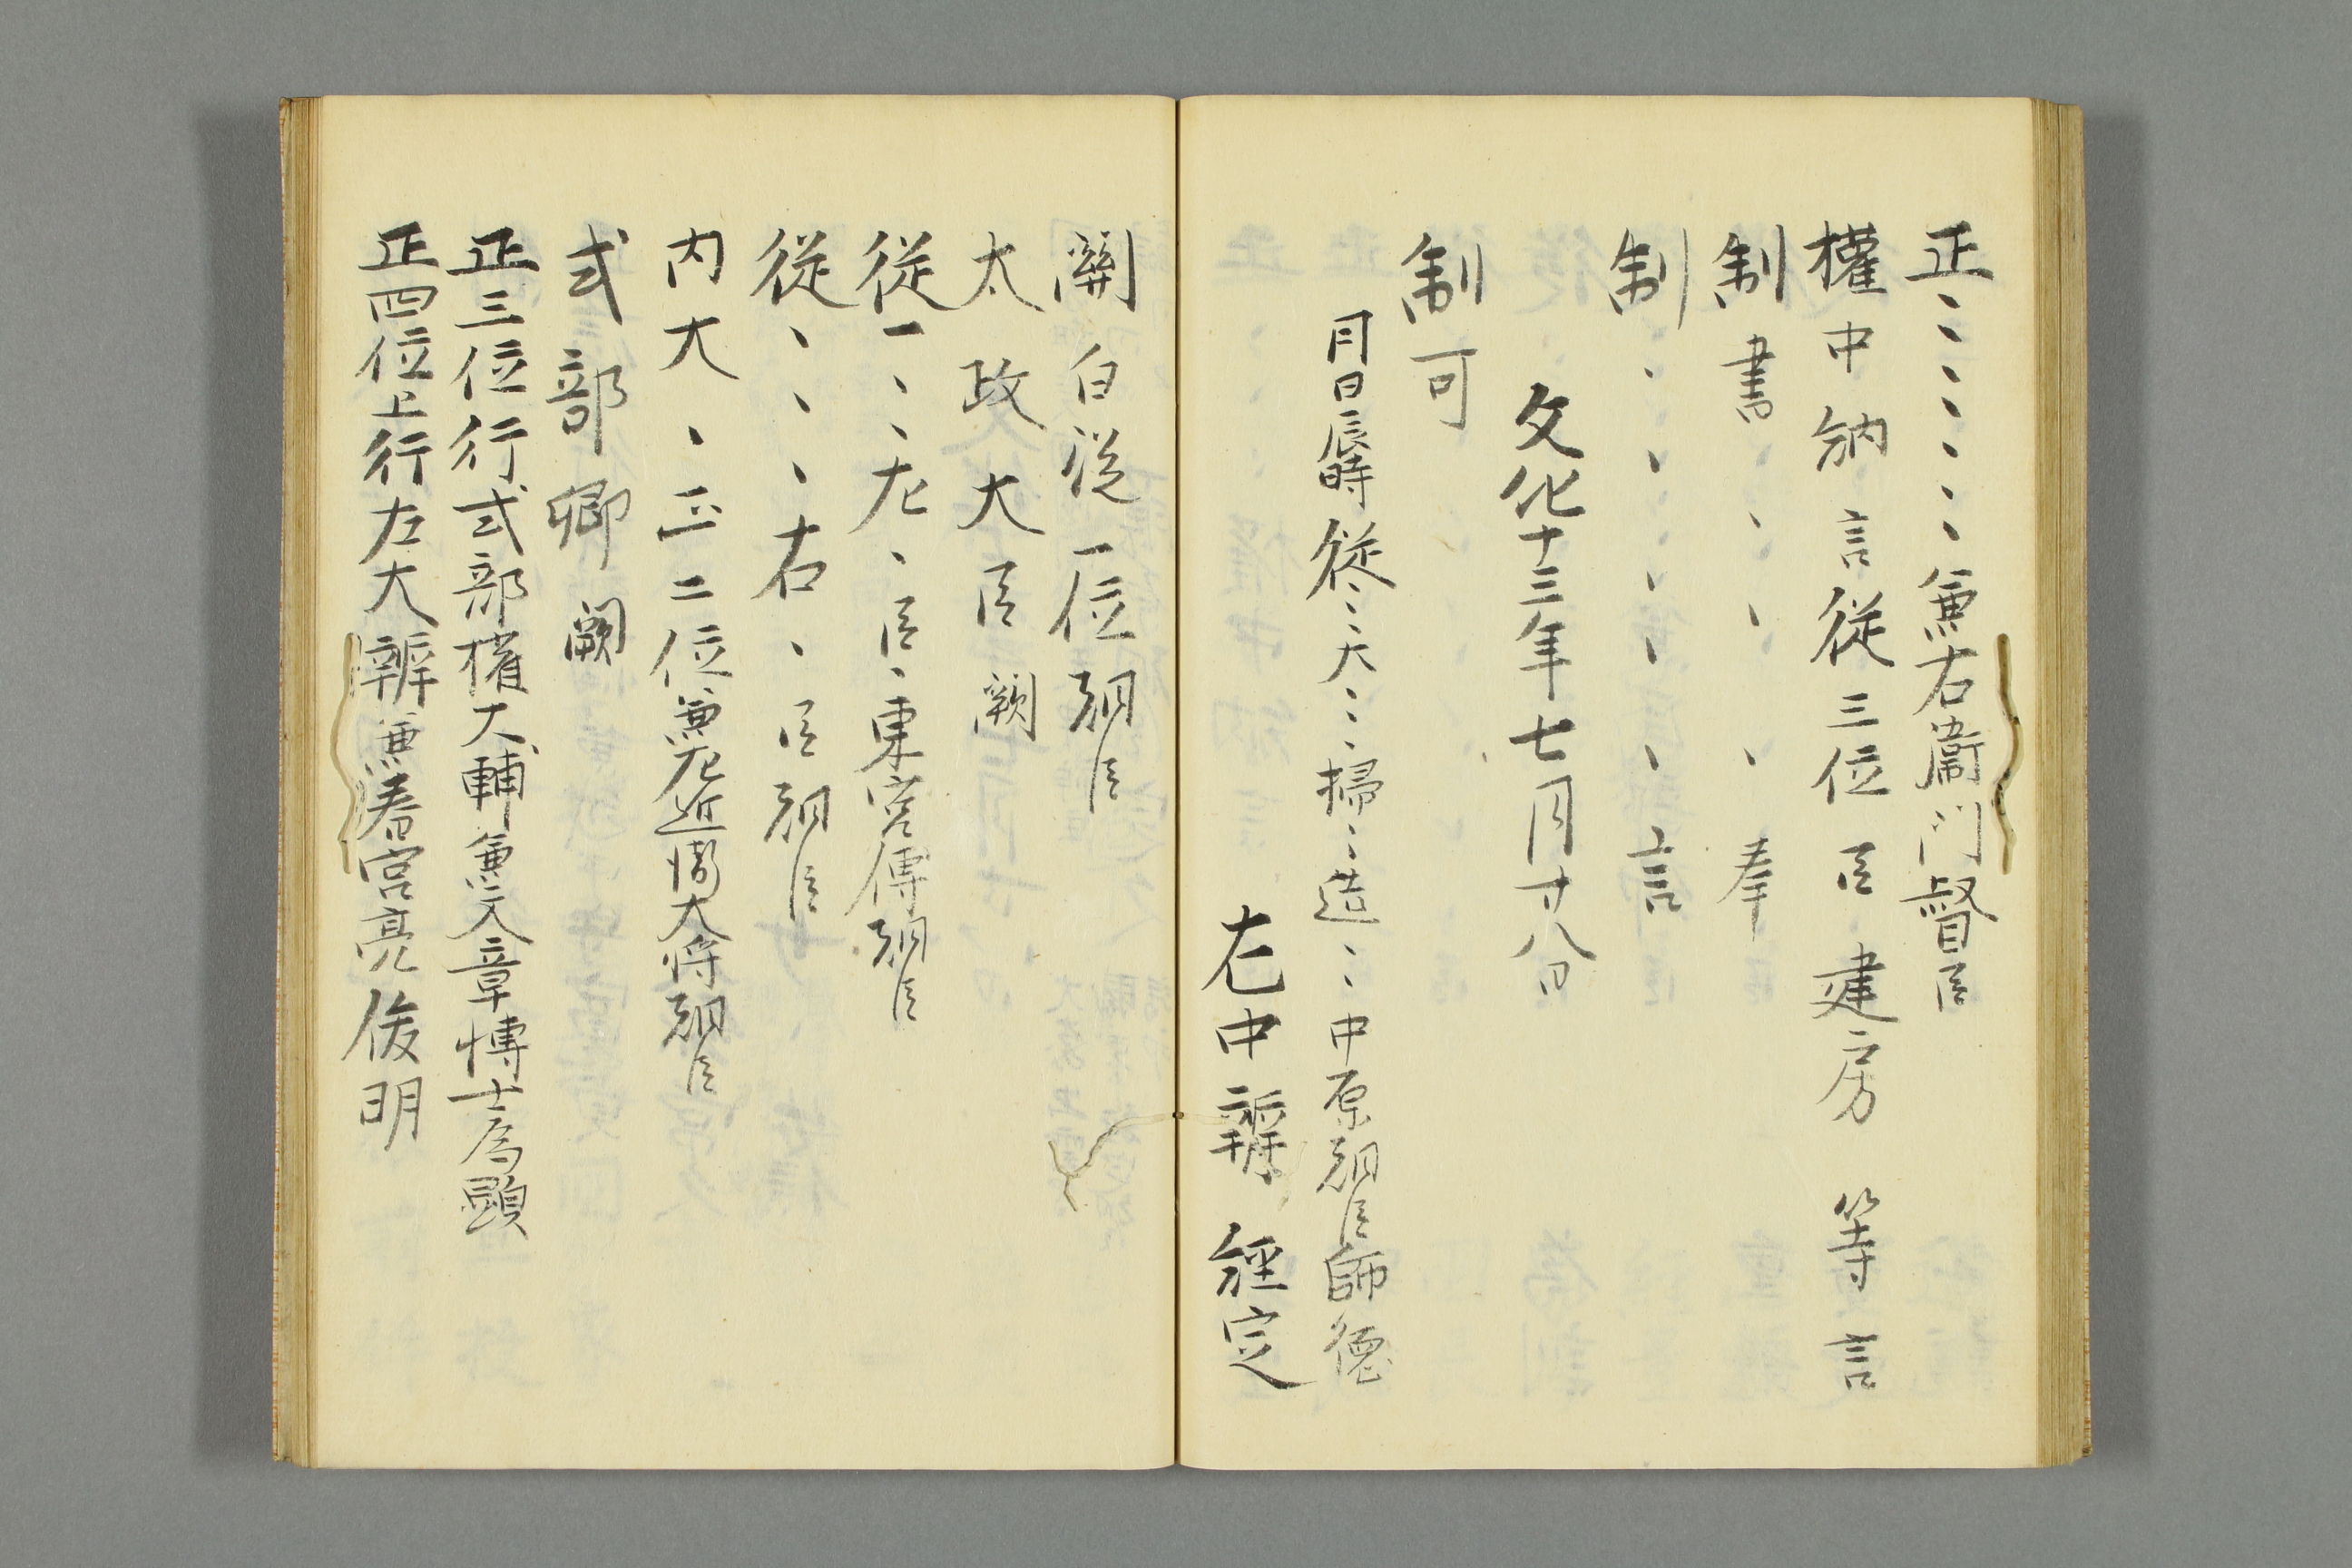 正、、、、、、兼右衞門督臣
權中納言從三位臣建房等言
制書、、、奉
制、、、、、言
文化十三年七月廿八日
制可
月日辰時從、、大、、、掃、、造、、中原朝臣師德
左中辨經定
關白從一位朝臣
太政大臣闕
從一、、左、臣、東宮傅朝臣
從、、、右、臣朝臣
内大、、正二位兼左近衞大将朝臣
式部卿闕
正三位行式部權大輔兼文章博士為顯
正四位上行左大辨兼春宮亮俊明